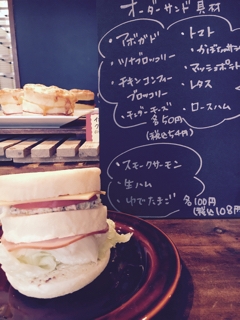 オーダーサンド具材
・アボガド
・ツナブロッコリー
・チキンコンフィー
ブロッコリー
・チェダーチーズ
・トマト
・かぼちゃサラダ
・マッシュポテト
・レタス
・ロースハム
各50円
(税込54円)
・スモークサーモン
・生ハム
・ゆでたまご 各100円
(税込108円)